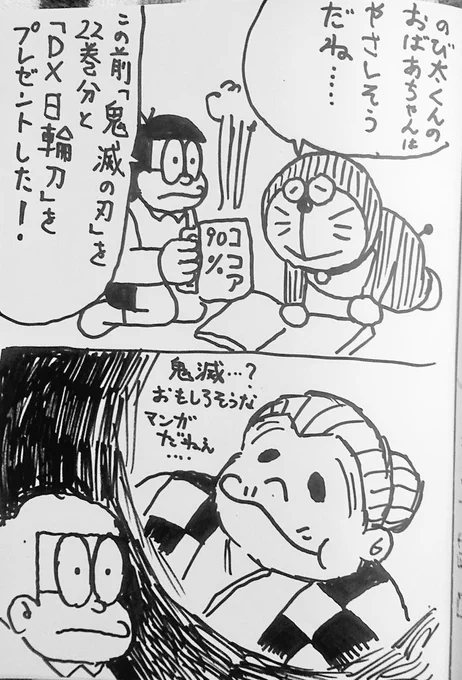 のび太くんの
おばあちゃんは
やさしそう
だね……
この前「鬼滅の刃」を
22巻分と
「DX日輪刀」を
プレゼントした!
ココア
90%
鬼滅…?
おもしろそうな
マンガ
だねぇ
‥‥